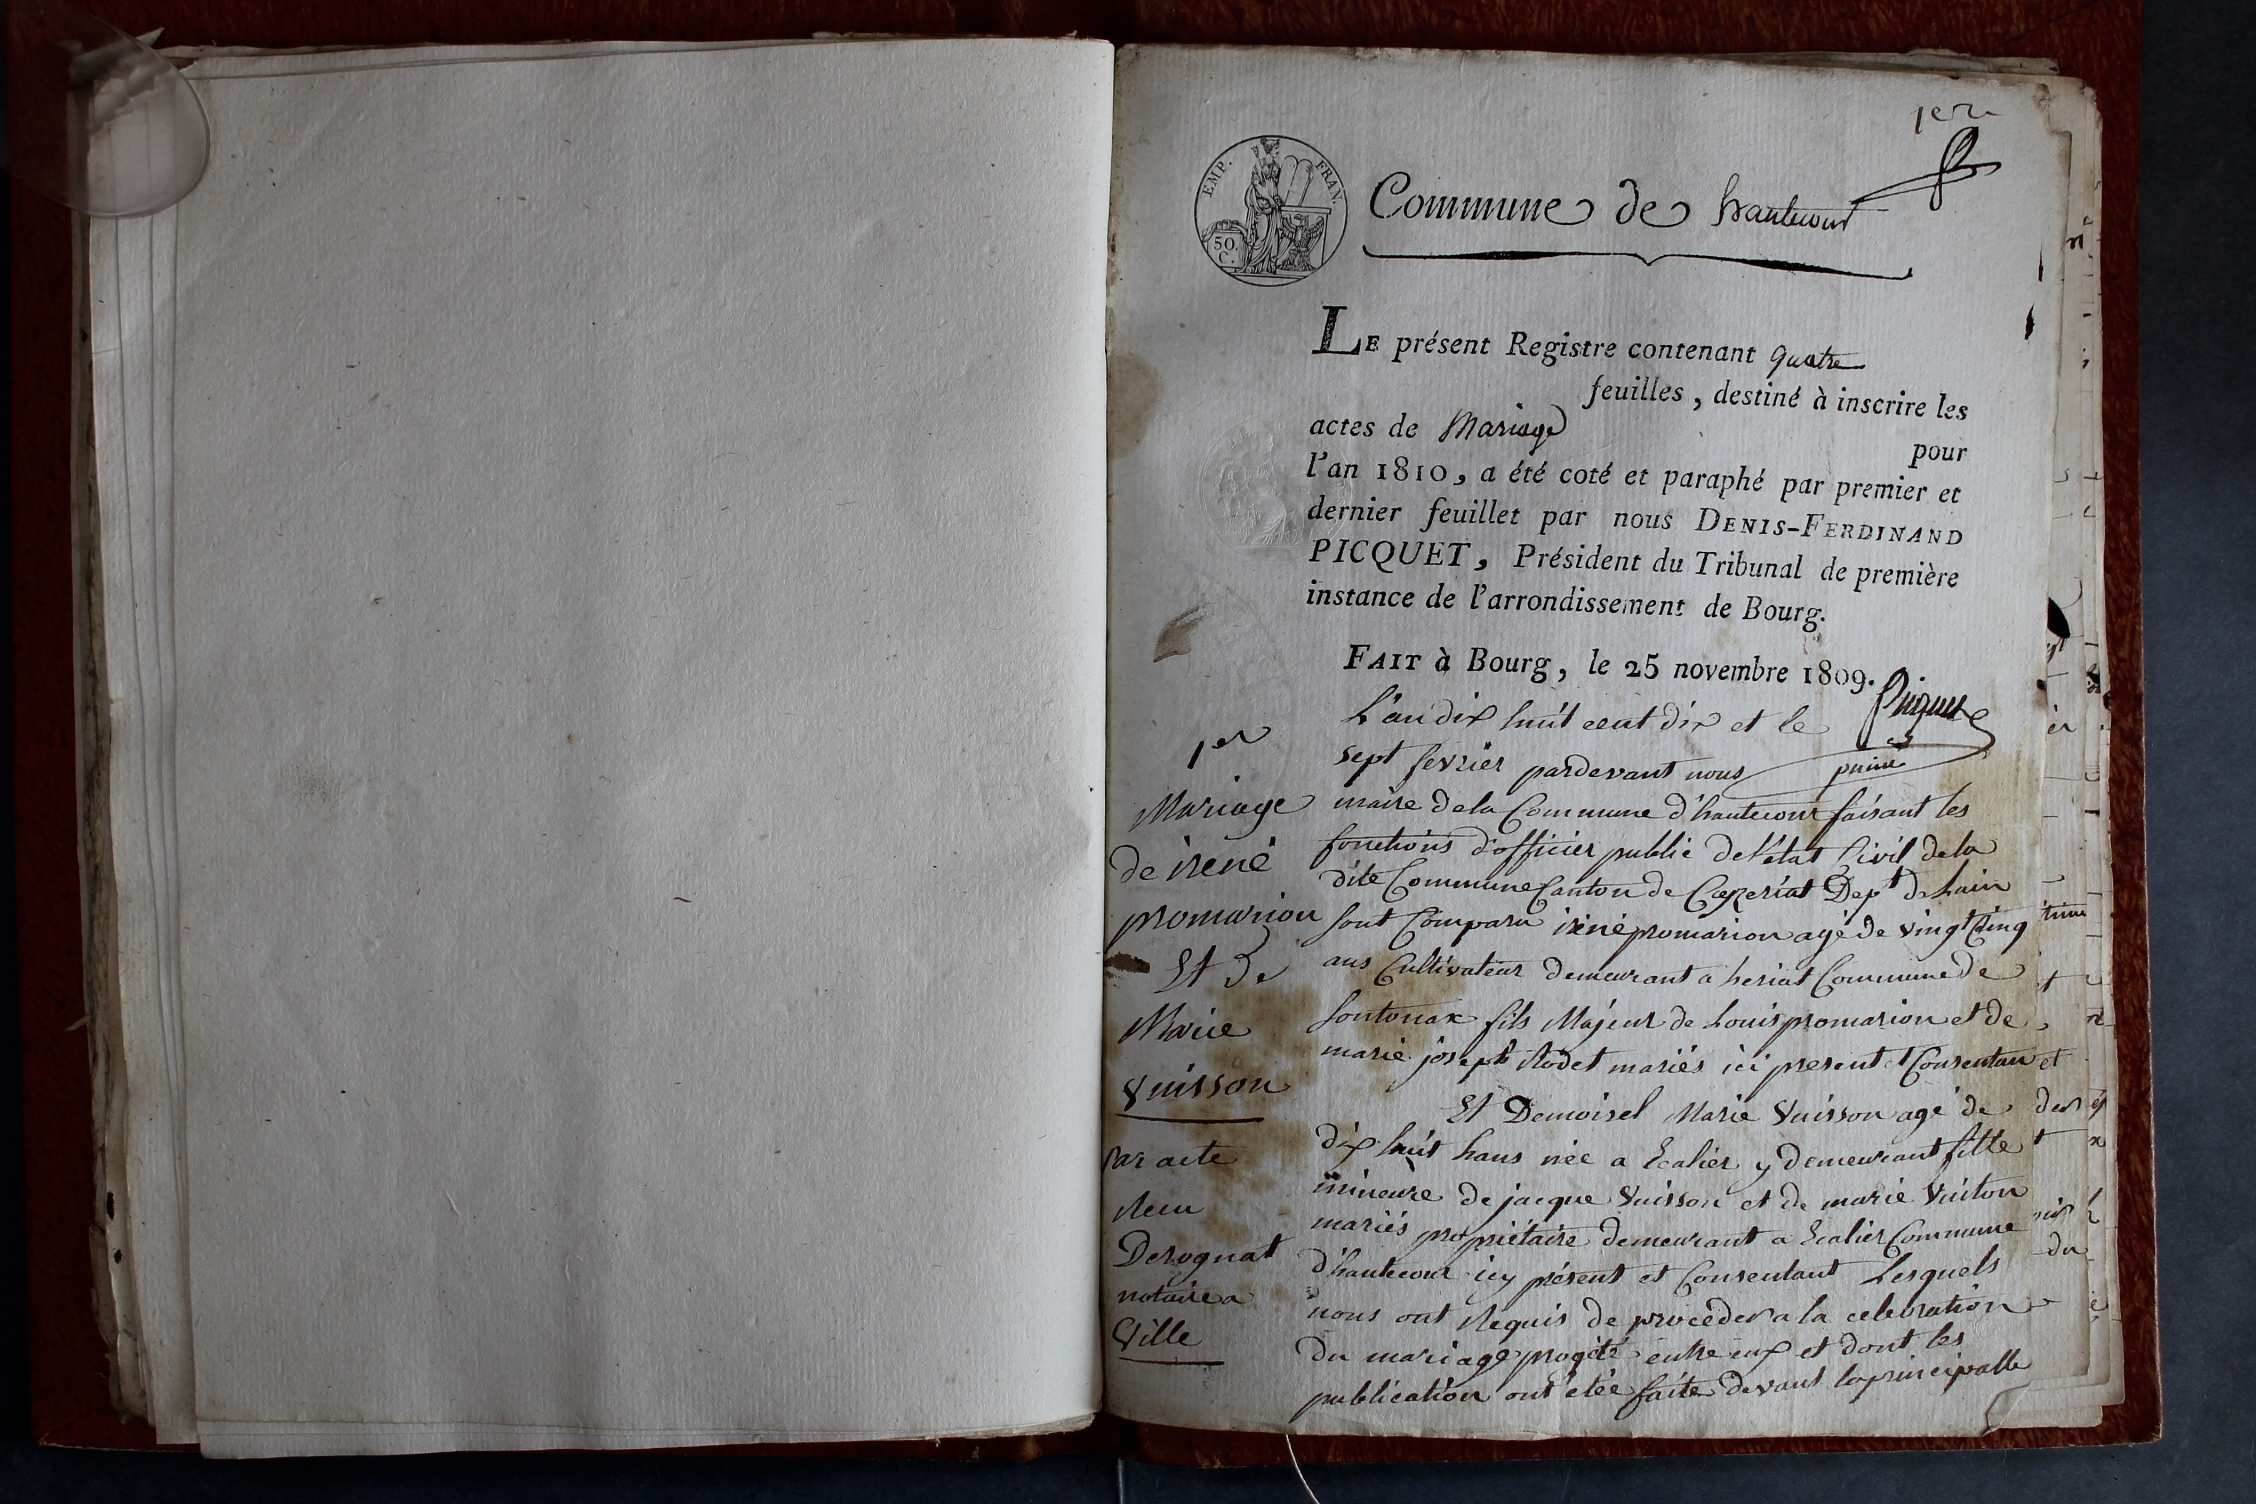 1er
EMP. FRAN.
50.
C.
Commune de hautecour
LE présent Registre contenant quatre
feuilles, destiné à inscrire les
actes de Mariage
pour
l'an 1810, a été coté et paraphé par premier et
dernier feuillet par nous DENIS-FERDINAND
PICQUET, Président du Tribunal de première
instance de l'arrondissement de Bourg.
FAIT à Bourg, le 25 novembre 1809.
Picquet
1er
Mariage
de irené
promarion
Et De
Marie
Vuisson
par acte
Recu
Derognat
notaire a
Ville
L'an dix huit cent dix et le
sept fevrier pardevant nous
maire dela Commune d'hautecour faisant les
fonctions d'officier public del'état Civil dela
dite Commune Canton de Cezeriat Dept. De Lain
sont Comparu irené promarion agé de vingt Cinq
ans Cultivateur demeurant a heriat Commune de
Sontonax fils Majeur de Louis promarion et de
marie joseph Rodet mariés ici present et Consentant
Et Demoisel Marie Vuisson agé de
dix huit hans née a Ecalier y demeurant fille
mineure de jacque Vuisson et de marie Vuiton
mariés propriétaire demeurant a Ecalier Commune
d'hautecour icy présent et Consentant Lesquels
nous ont Requis de proceder a la celebration
du mariage progété entre eux et dont les
publication ont étée faite devant la principalle